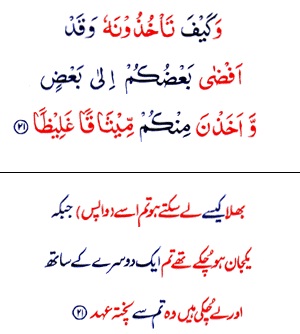 وَكَيْفَ تَاْخُذُوْنَهٗ وَقَدْ
اَفْضٰى بَعْضُكُمْ اِلٰى بَعْضٍ
وَّ اَخَذْنَ مِنْكُمْ مِّيْثَاقًا غَلِيْظًا ﴿۲۱﴾
بھلا کیسے لے سکتے ہو تم اسے (واپس) جبکہ
یکجان ہو چکے تھے تم ایک دوسرے کے ساتھ
اور لے چکی ہیں وہ تم سے پختہ عہد ﴿۲۱﴾